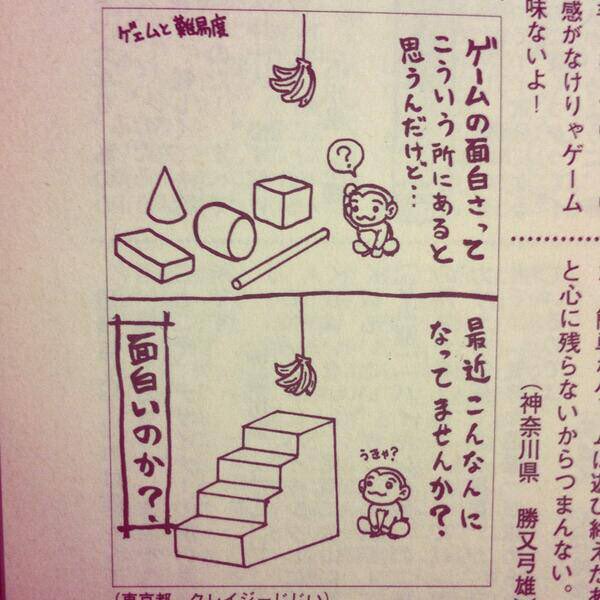 感がなけりゃゲーム
味ないよ！
と心に残らないからつまんない。
（神奈川県　勝又弓雄
ゲェムと難易度
ゲームの面白さって
こういう所にあると
思うんだけど…
？
最近こんなんに
なってませんか？
うきゃ？
面白いのか？
（東京都　クレイジーじじい）